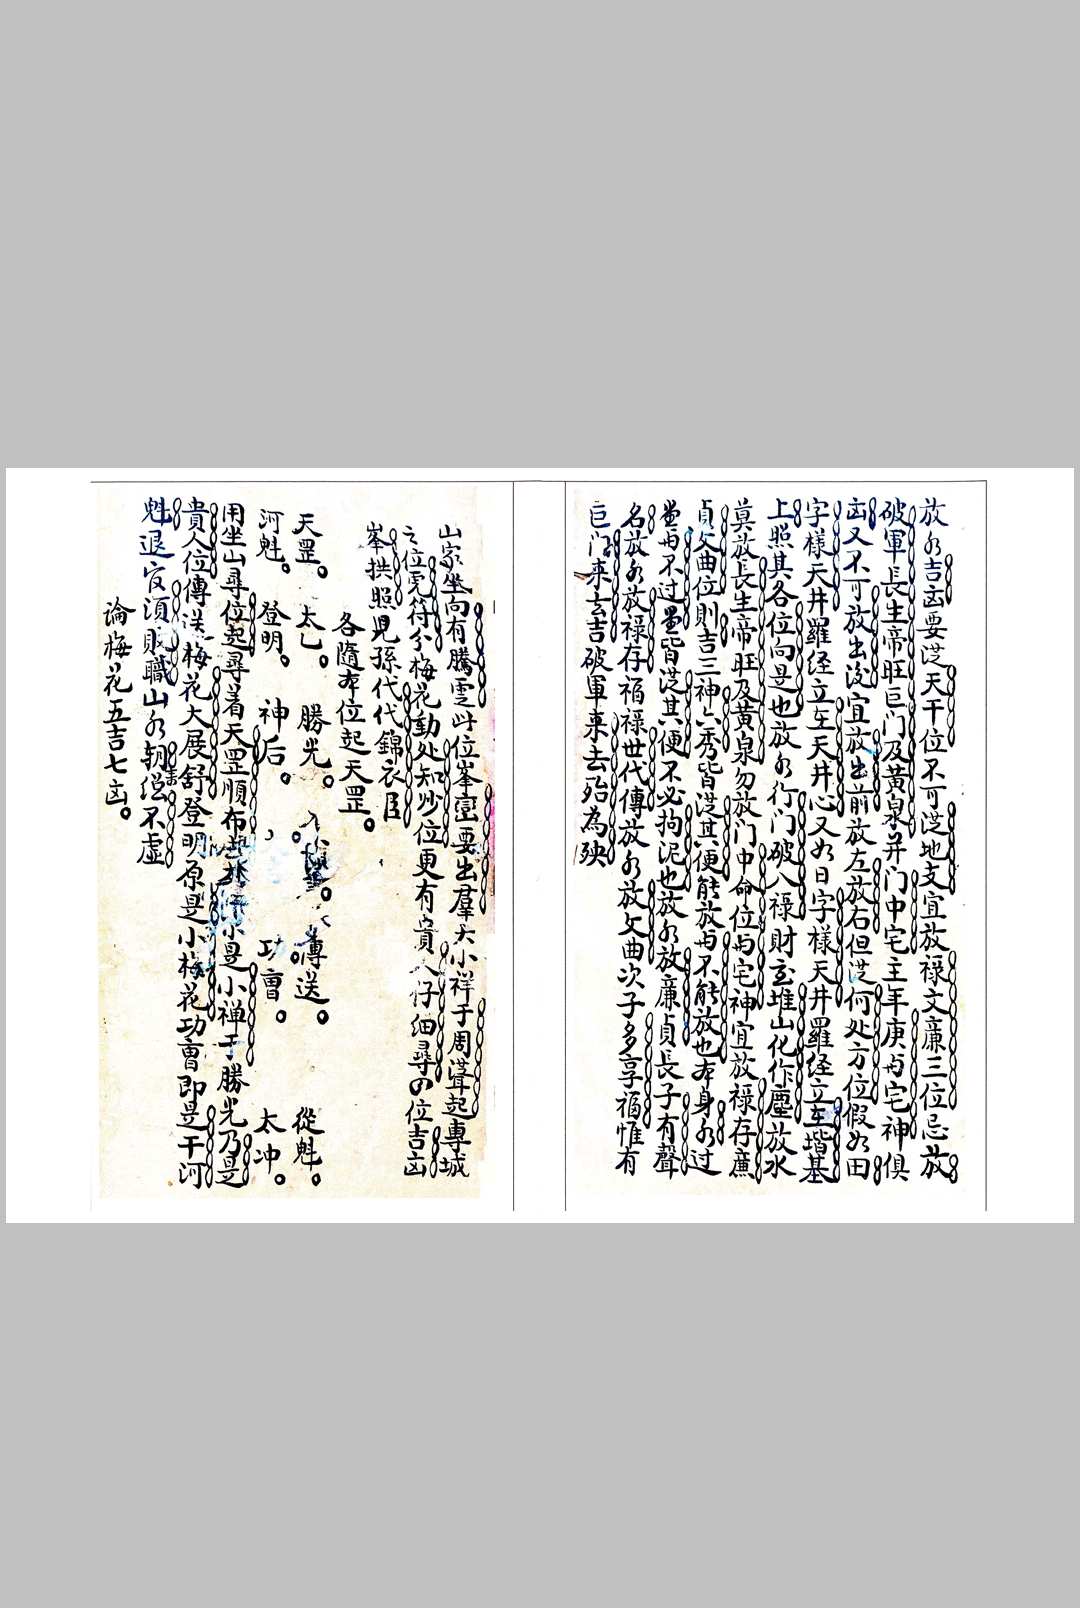 放水吉凶要从天干位不可从地支宜放祿文廉三位忌放
破軍長生帝旺巨门及黃泉并门中宅主年庚与宅神俱
凶又不可放出後宜放出前放左放右但从何处方位假如田
字樣天井羅经立在天井心又如日字樣天井羅经立在堦基
上照其各位向是也放水行门破人祿財宝堆山化作塵放水
莫放長生帝旺及黃泉勿放门中命位与宅神宜放祿存廉
貞文曲位則吉三神六秀皆从其便能放与不能放也本身水过
堂与不过堂皆从其便不必拘泥也放水放廉貞長子有聲
名放水放祿存福祿世代傳放水放文曲次子多享福惟有
巨门来去吉破軍来去殆為殃
山家坐向有騰雲此位峯巒要出羣大小祥于周聳起專城
之位虎符分梅花動处知妙位更有貴人仔细尋四位吉凶
峯拱照児孫代代錦衣臣
各隨本位起天罡。
天罡。太乙。勝光。傳送。從魁。
河魁。登明。神后。功曹。太冲。
用坐山尋位起尋着天罡順布小是小禅于勝光乃是
貴人位傳送梅花大展舒登明原是小梅花功曹即是干河
魁退官須貶職山水朝来不虛
論梅花五吉七凶。